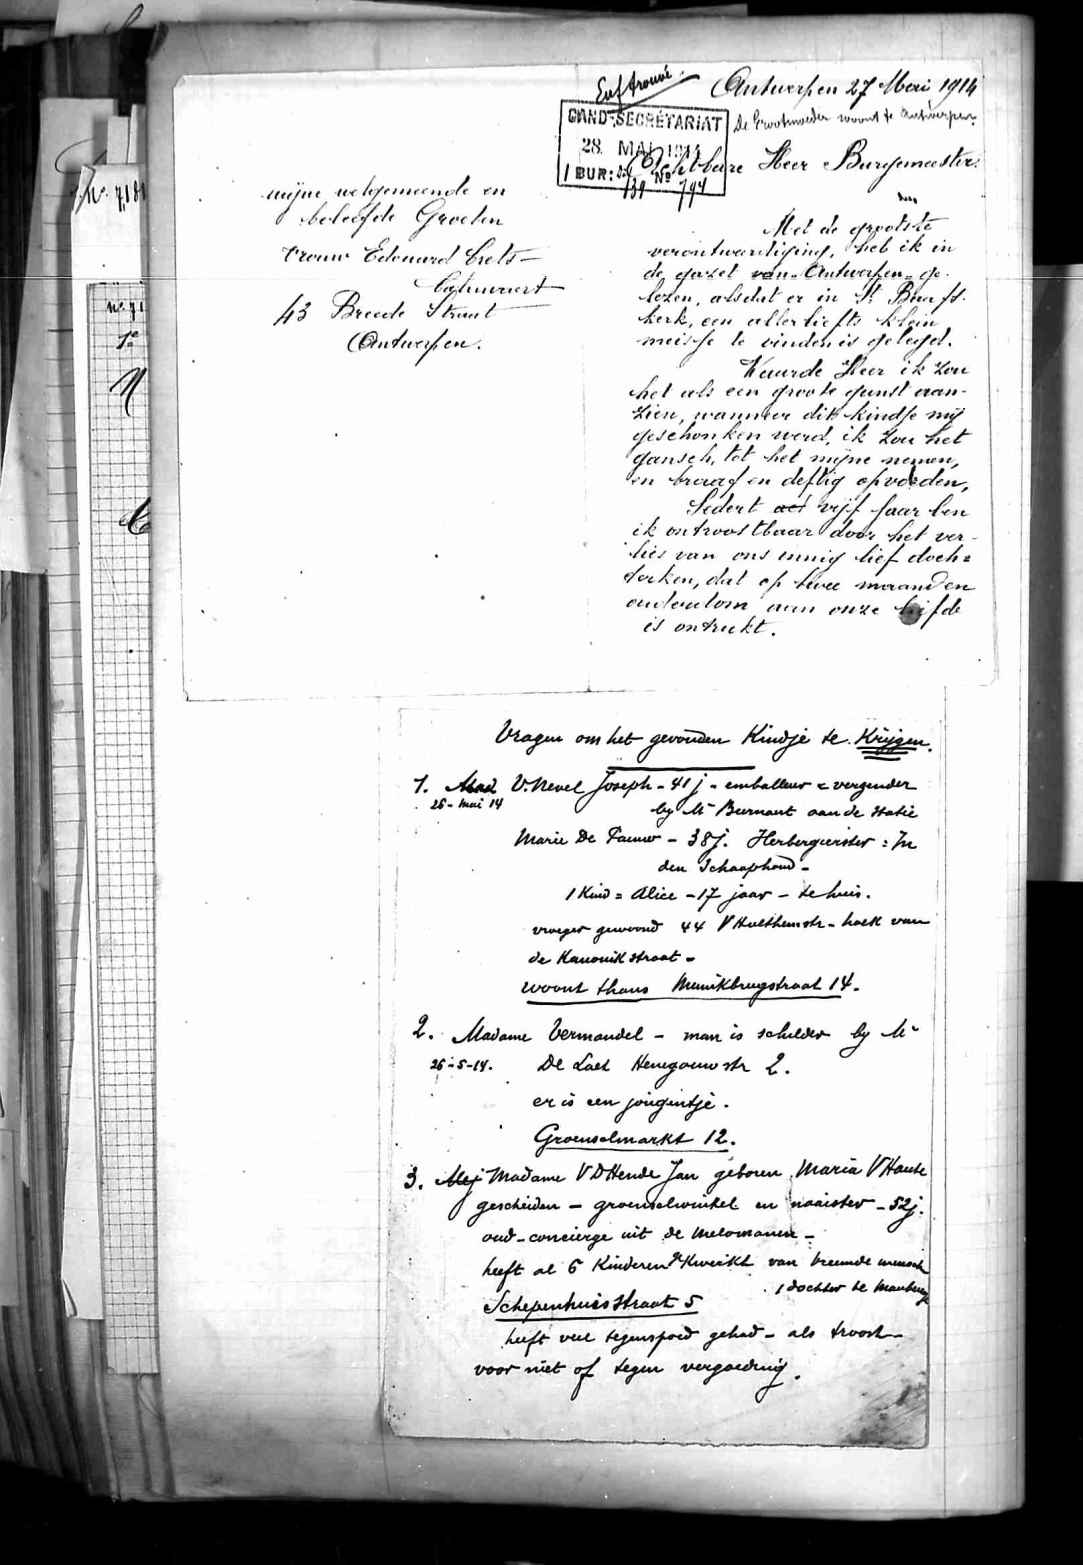 Enf trouvé.
Antwerpen 27 Mei 1914
De Grootmoeder woont te Antwerpen.
GAND-SECRÉTARIAT
28 MAI 1914
1 BUR: No 794
Achtbare Heer Burgemeester.
Met de grootste
verontweerdiging, heb ik in
de gazet van Antwerpen ge-
lezen, alsdat er in St Baafs-
kerk, een allerliefts klein
meisje te vinden is gelegd.
Waarde Heer ik zou
het als een groote gunst aan-
zien, wanneer dit kindje mij
geschonken werd, ik zou het
gansch, tot het mijne nemen,
en braaf en deftig opvoeden,
Sedert vijf jaar ben
ik ontroostbaar door het ver-
lies van ons innig lief doch=
terken, dat op twee maanden
ouderdom aan onze liefde
is ontrukt.
mijne welgemeende en
beleefde Groeten
Vrouw Edouard Crets-
43 Breede Straat
Antwerpen.
Vragen om het gevonden Kindje te Krijgen.
1. V. Nevel Joseph - 41 j - emballeur = vergender
26 - mai 14
by Mr Burnant aan de statie
Marie De Pauw - 38 j. Herbergierster : In
den Schaaphond -
1 Kind = Alice - 17 jaar - te huis.
vroeger gewoond 44 V Hulthemstr - hoek van
de Kanonikstraat -
woont thans Meunikbrugstraat 14.
2. Madame Vermandel - man is schilder by Mr
26-5-14. De Laet Henegouwstr 2.
er is een jongentje.
Groenselmarkt 12.
3. Madame V D Hende Jan geboren Maria V Haute
gescheiden - groenselwinkel en naaister - 52 j.
oud-concierge uit de Melomanen -
heeft al 6 Kinderen gekweekt van vreemde mensch
1 dochter te Maubeuge
Schepenhuisstraat 5
heeft veel tegenspoed gehad - als troost -
voor niet of tegen vergoeding.